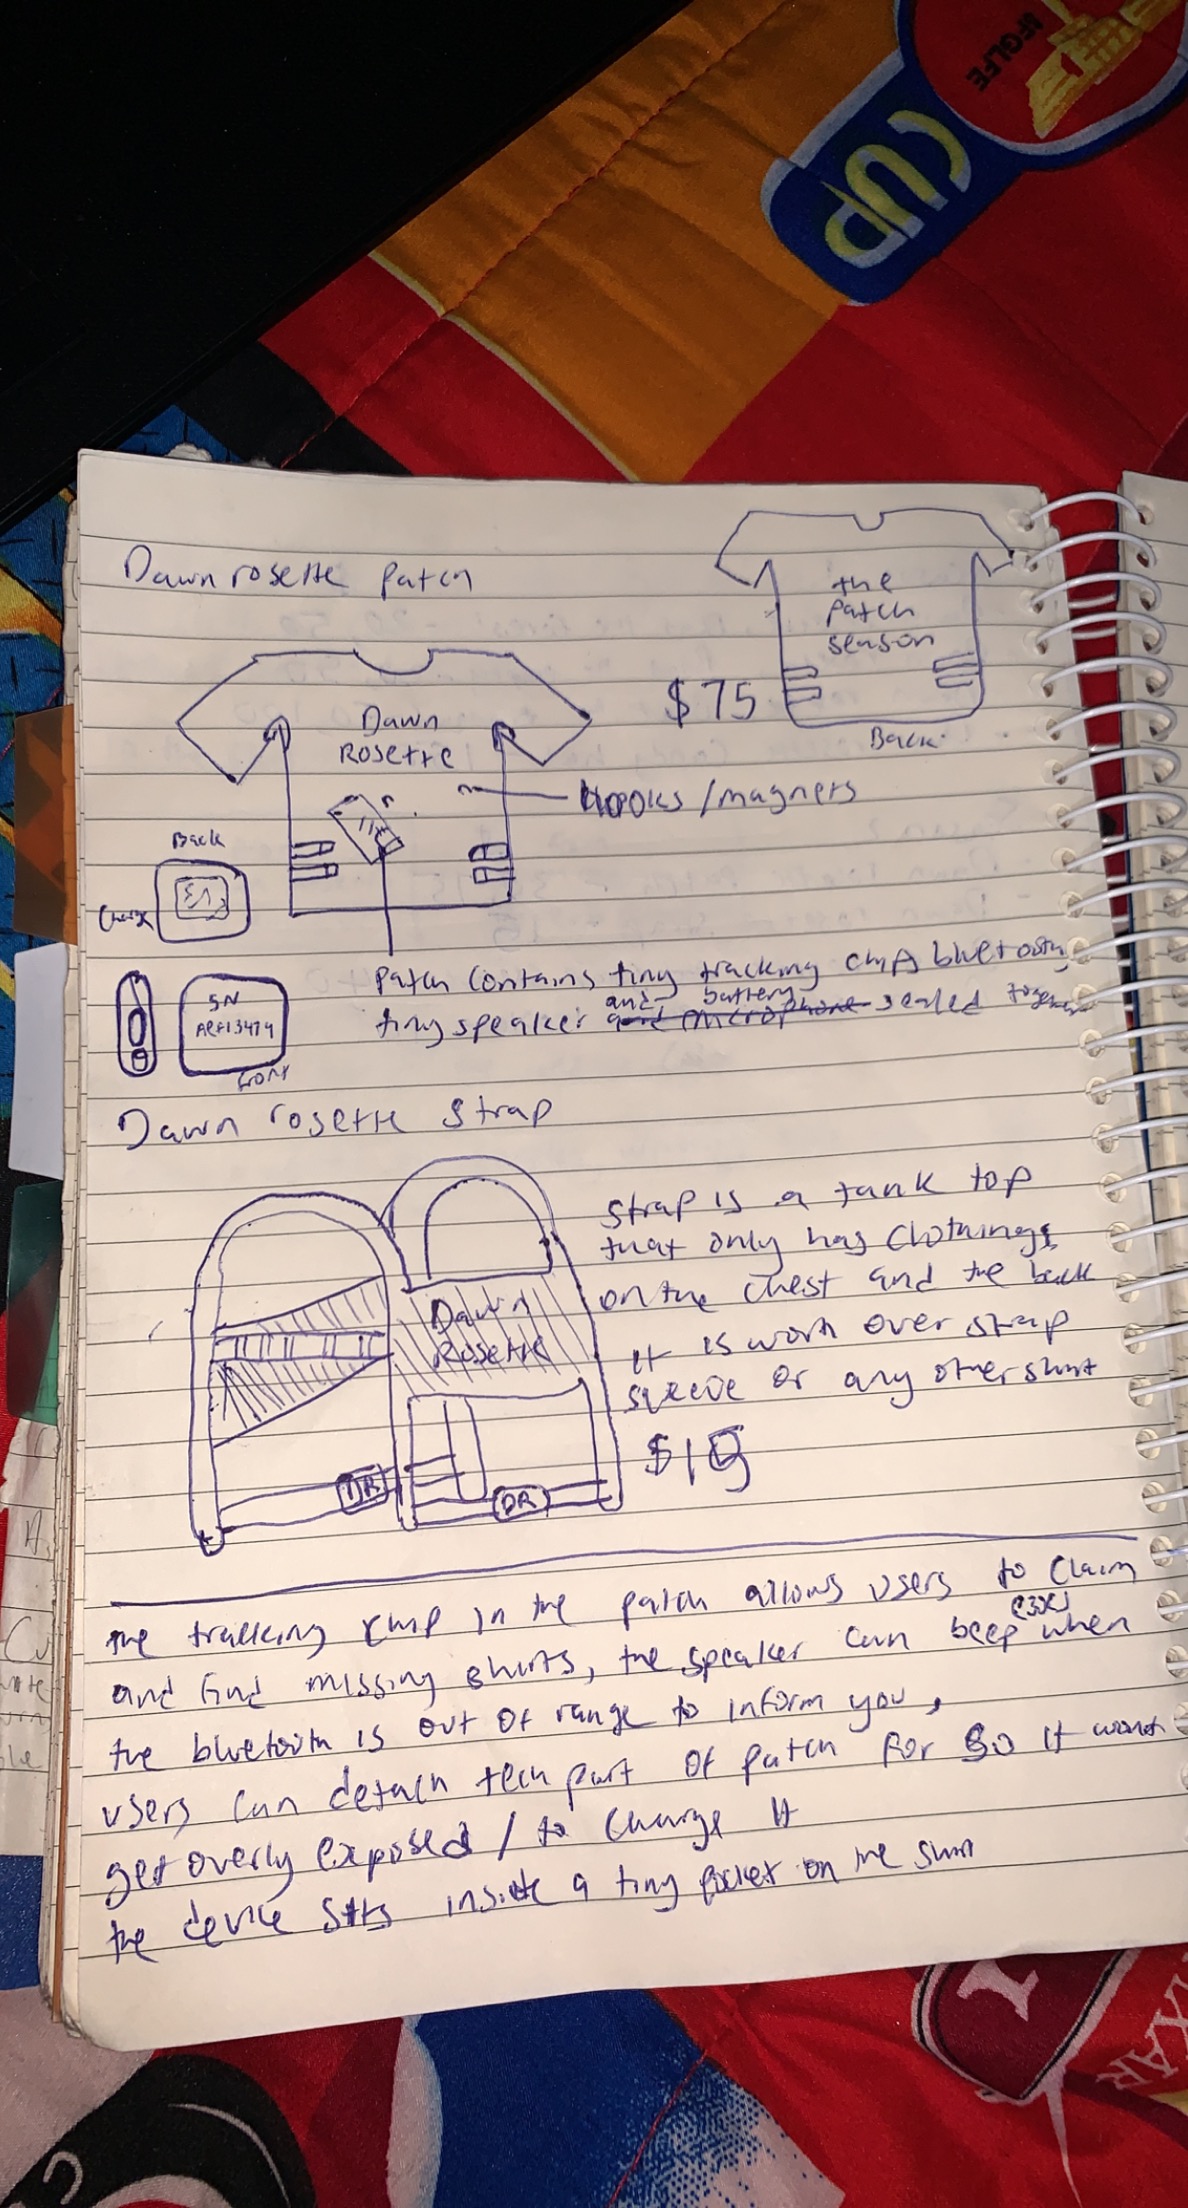 CUP
Dawn rosette patch
the
patch
season
$75
Back
Dawn
Rosette
Hooks/magnets
Back
Charge
patch contains tiny tracking chip bluetooth
and battery
tiny speaker and microphone sealed together
SN
front
Dawn rosette strap
strap is a tank top
that only has clothings
on the chest and the back
it is worn over strap
sleeve or any other shirt
$19
Dawn
Rosette
DR
DR
the tracking chip in the patch allows users to claim
and find missing shirts, the speaker can beep (3x) when
the bluetooth is out of range to inform you,
users can detach tech part of patch for so it wont
get overly exposed / to charge it
the device sits inside a tiny pocket on the shirt